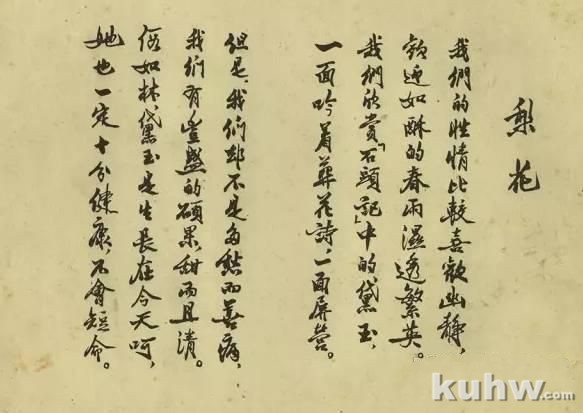 梨花
我們的性情比較喜歡幽靜，
歡迎如酥的春雨濕透繁英。
我們欣賞「石頭記」中的黛玉，
一面吟着葬花詩，一面屏營。
但是，我們却不是多愁而善病，
我們有豐盛的碩果，甜而且清。
倘如林黛玉是生長在今天呵，
她也一定十分健康，不會短命。
kuhw.com